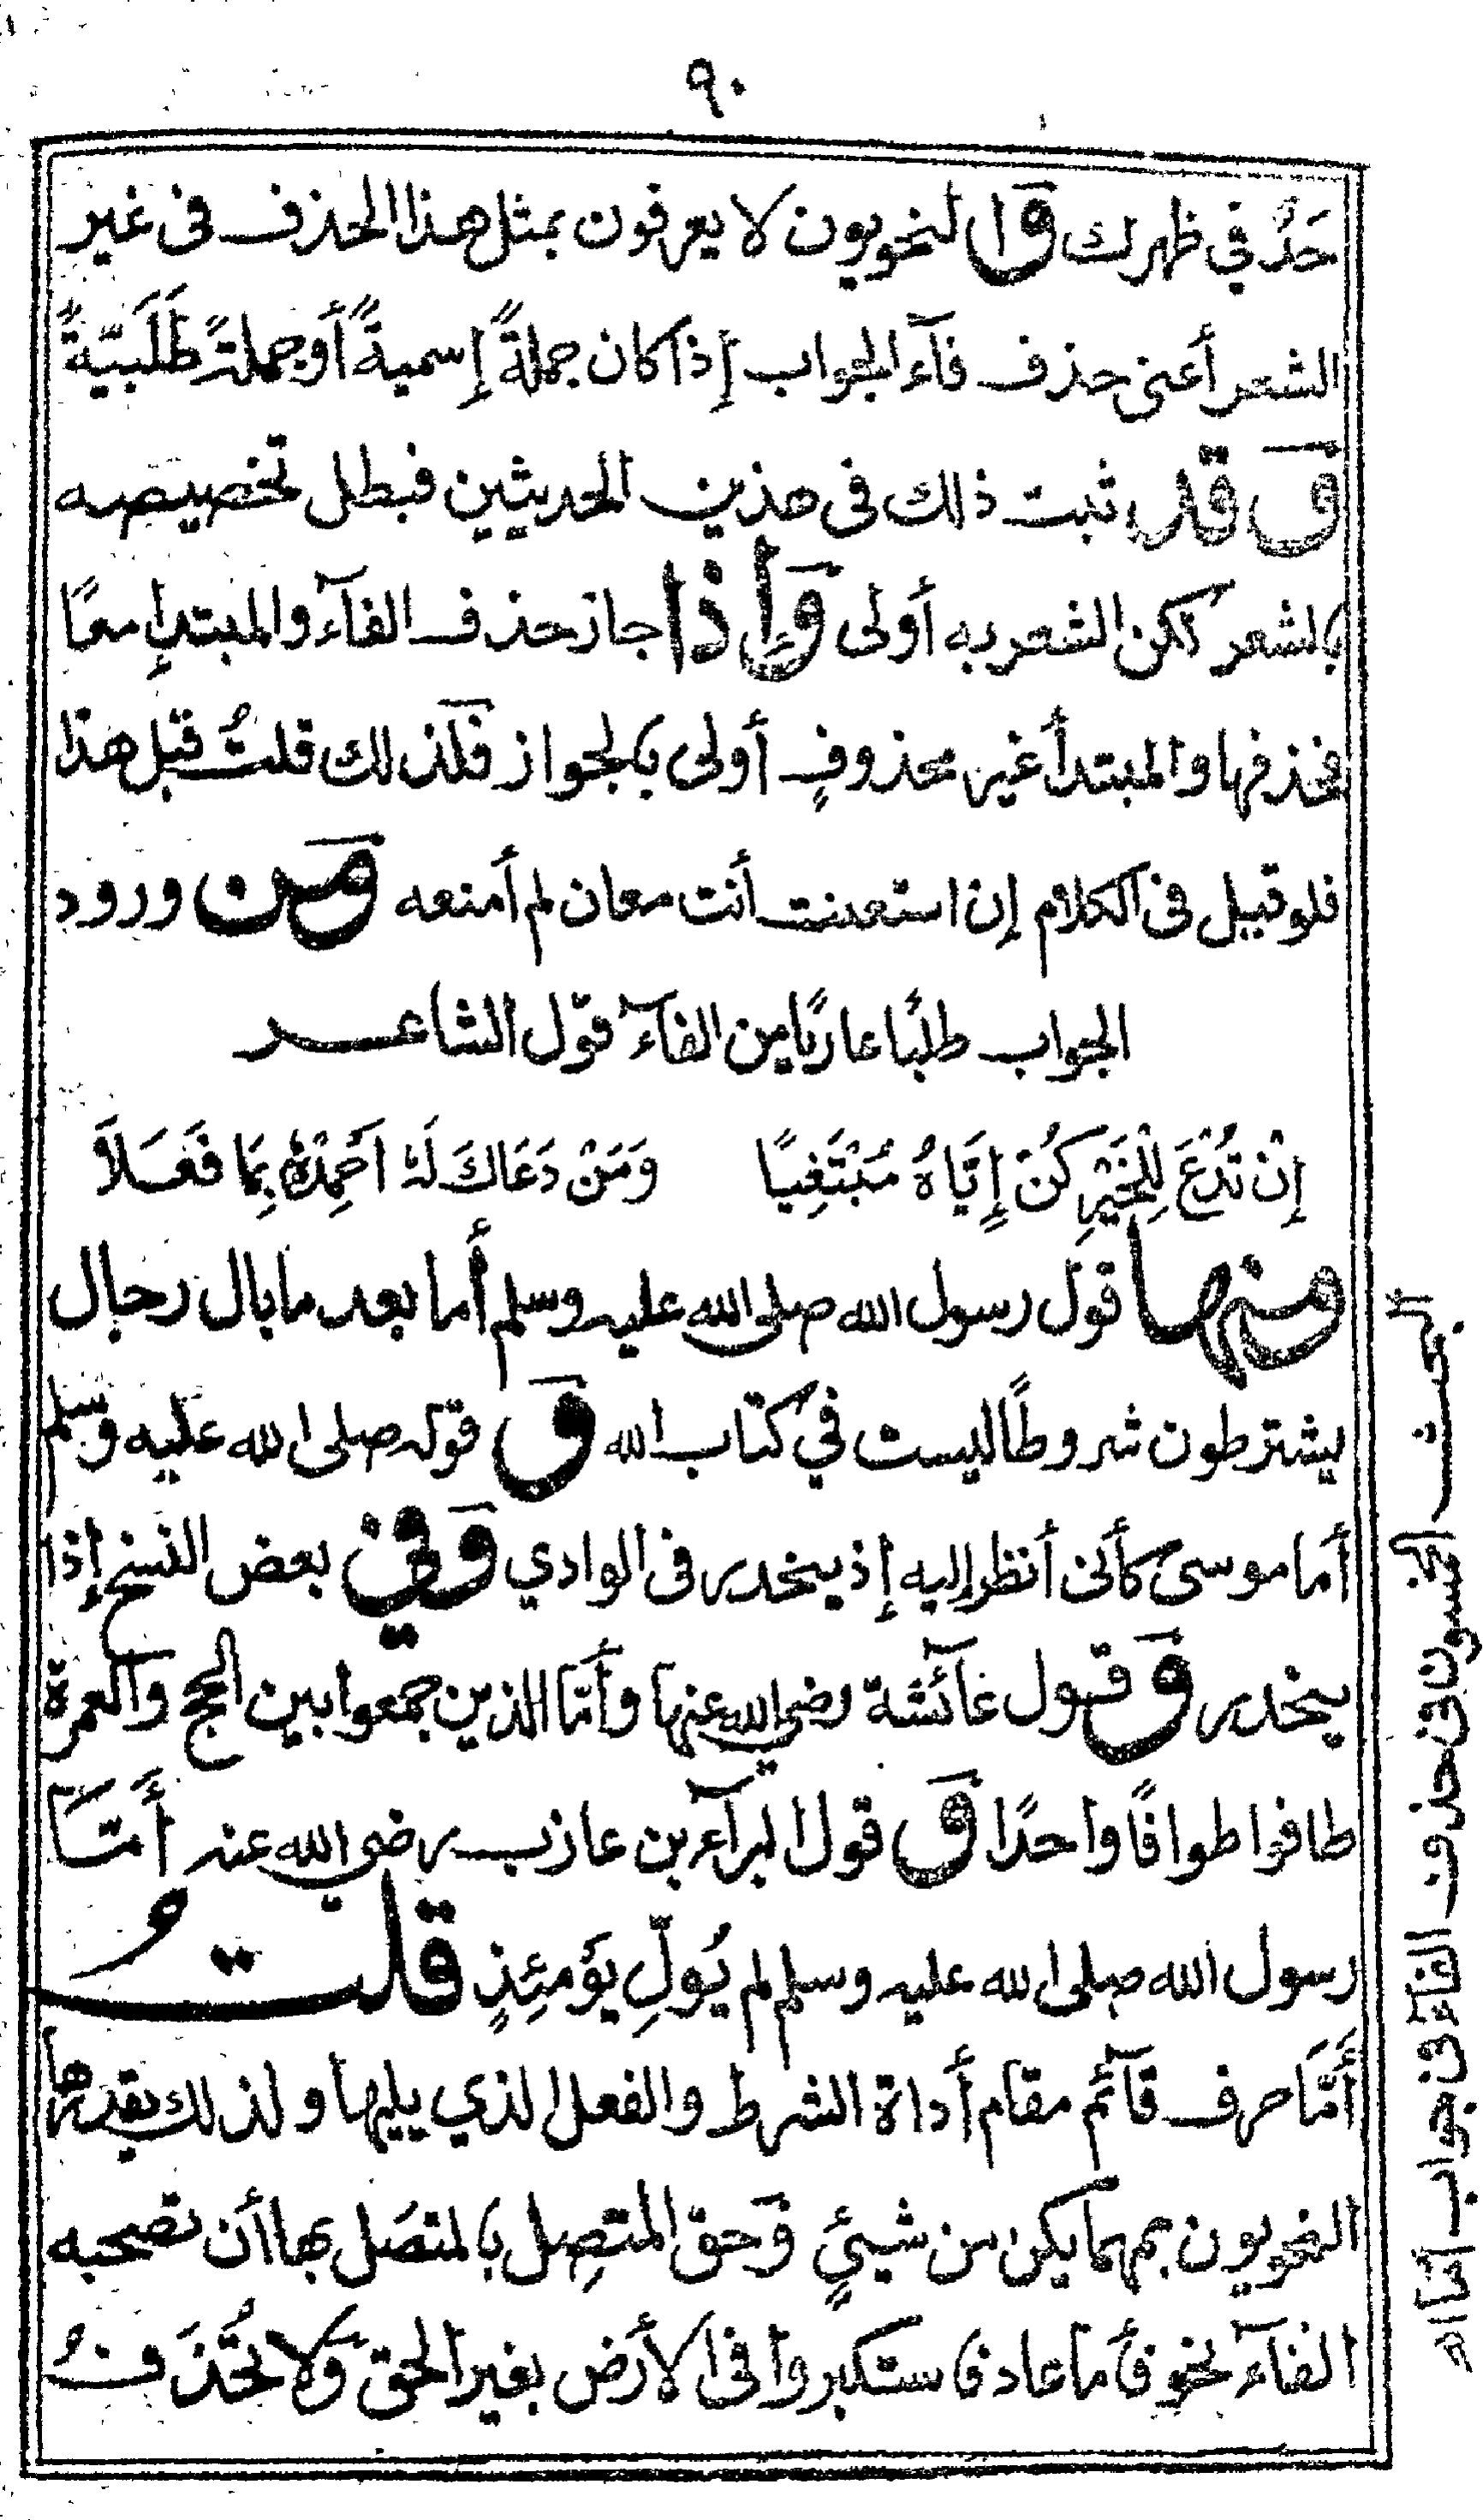 ٩٠
حَدٌّ في ظهرك وَالنحويون لا يعرفون بمثل هذا الحذف فى غير
الشعر أعنى حذف فآء الجواب إذا كان جملةً إسميةً أو جملةً طَلَبيّةً
وَقد ثبت ذلك فى هذين الحديثين فبطل تخصيصه
بالشعر لكن الشعر به أولى وَإِذا جاز حذف الفآء والمبتدإ معًا
فحذفها والمبتدأ غير محذوفٍ أولى بالجواز فلذلك قلتُ قبل هذا
فلو قيل فى الكلام إن استعنت أنت معان لم أمنعه وَمن ورود
الجواب طلبًا عاريًا من الفآء قول الشاعر
إِنْ تُدْعَ لِلْخَيْرِ كُنْ إِيَّاهُ مُبْتَغِيًا وَمَنْ دَعَاكَ لَهُ اَحْمِدْهُ بِمَا فَعَلاَ
ومنها قول رسول الله صلى الله عليه وسلم أما بعد ما بال رجال
يشترطون شروطًا ليست في كتاب الله وَ قوله صلى الله عليه وسلم
أما موسى كأنى أنظر إليه إذ ينحدر فى الوادي وَفي بعض النسخ إذا
ينحدر وَقول عآئشة رضي الله عنها وأمّا الذين جمعوا بين الحج والعمرة
طافوا طوافًا واحدًا وَ قول البرآء بن عازب رضي الله عنه أَمَّا
رسول الله صلى الله عليه وسلم لم يُولِّ يَومئِذٍ قلت
أَمَّا حرف قآئم مقام أداة الشرط والفعل الذي يليها ولذلك يقدرها
النحويون بمهما يكن من شيئٍ وَحق المتصِل بالمتصَل بها أن تصحبه
الفآء نحو فأما عاد فاستكبروا فى الأرض بغير الحق وَلا تُحذَفُ
فى حذف الفآء فى جواب أمّا